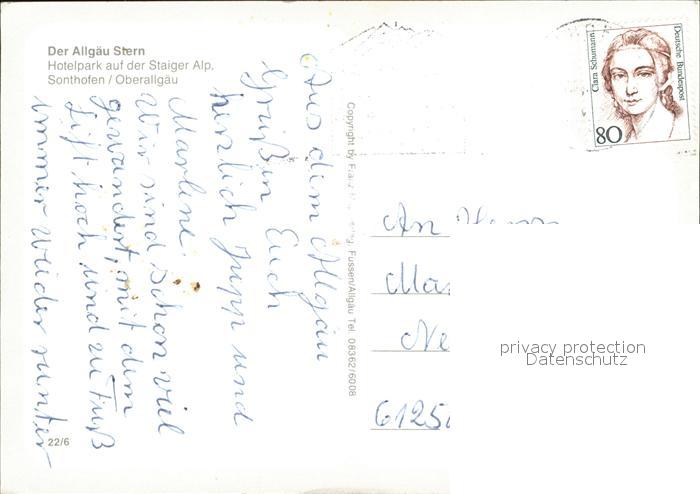 Der Allgäu Stern
Hotelpark auf der Staiger Alp,
Sonthofen / Oberallgäu
Aus dem Allgäu
Grüßen Euch
herzlich Jupp und
Marlene
Wir sind schon viel
gewandert, mit dem
Lift hoch und zu Fuß
immer wieder runter
22/6
Copyright by Fussen/Allgäu Tel. 08362/6008
Clara Schumann
Deutsche Bundespost
80
An
6125
privacy protection
Datenschutz